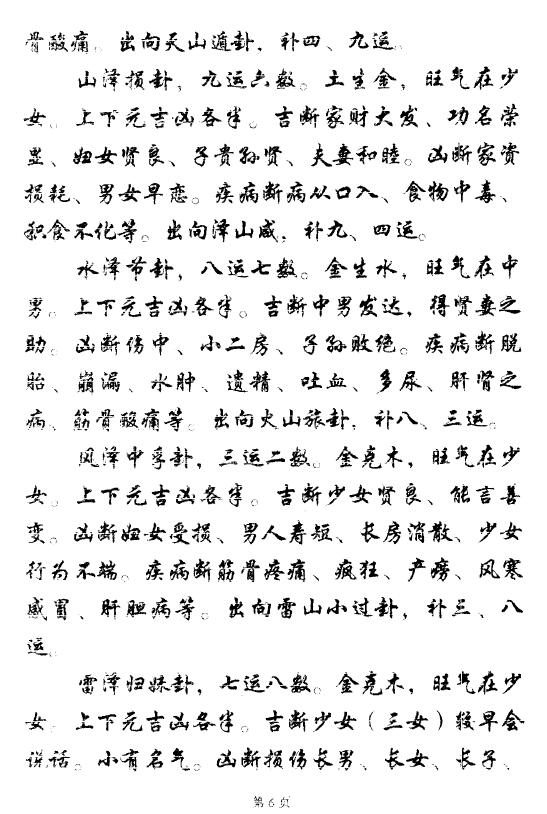 骨酸痛。出向天山遁卦，补四、九运。
山泽损卦，九运六数。土生金，旺气在少
女。上下元吉凶各半。吉断家财大发、功名荣
显、妇女贤良、子贵孙贤、夫妻和睦。凶断家资
损耗、男女早恋。疾病断病从口入、食物中毒、
积食不化等。出向泽山咸，补九、四运。
水泽节卦，八运七数。金生水，旺气在中
男。上下元吉凶各半。吉断中男发达，得贤妻之
助。凶断伤中、小二房、子孙败绝。疾病断脱
胎、崩漏、水肿、遗精、吐血、多尿、肝肾之
病、筋骨酸痛等。出向火山旅卦，补八、三运。
风泽中孚卦，三运二数。金克木，旺气在少
女。上下元吉凶各半。吉断少女贤良、能言善
变。凶断妇女受损、男人寿短、长房消散、少女
行为不端。疾病断筋骨疼痛、疯狂、产痨、风寒
感冒、肝胆病等。出向雷山小过卦，补三、八
运。
雷泽归妹卦，七运八数。金克木，旺气在少
女。上下元吉凶各半。吉断少女（三女）较早会
说话。小有名气。凶断损伤长男、长女、长子、
第 6 页